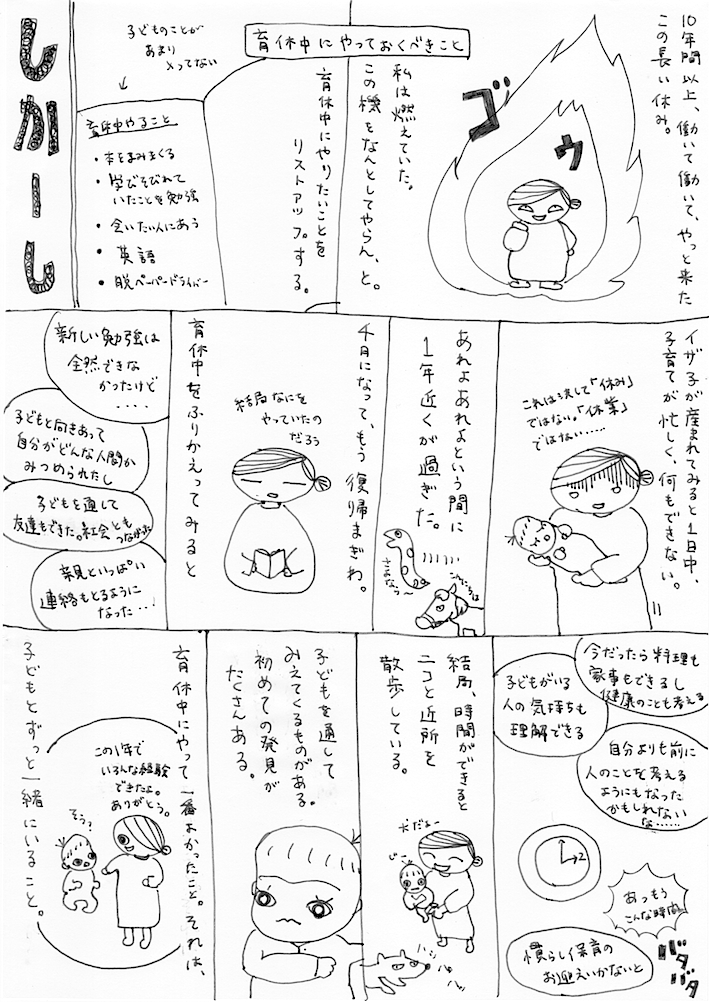 育休中にやっておくべきこと
10年間以上、働いて働いて、やっと来た
この長い休み。
ゴゥ
私は燃えていた。
この機をなんとしてやらん、と。
育休中にやりたいことを
リストアップする。
子どものことが
あまり
入ってない
育休中やること
・本をよみまくる
・学びそびれて
いたことを勉強
・会いたい人にあう
・英語
・脱ペーパードライバー
しかーし
イザ子が産まれてみると1日中、
子育てが忙しく、何もできない。
これは決して「休み」
ではない。「休業」
ではない……
あれよあれよという間に
1年近くが過ぎた。
さよなら〜
こんにちは
4月になって、もう復帰まぎわ。
結局なにを
やっていたの
だろう
育休中をふりかえってみると
新しい勉強は
全然できな
かったけど
・・・・
子どもと向きあって
自分がどんな人間か
みつめられたし
子どもを通して
友達もできた。社会とも
つながった
親といっぱい
連絡もとるように
なった…
今だったら料理も
家事もできるし
健康のことも考える
子どもがいる
人の気持ちも
理解できる
自分よりも前に
人のことを考える
ようにもなった
かもしれない
な……
2
あっもう
こんな時間
バタバタ
慣らし保育の
お迎えいかないと
結局、時間ができると
ニコと近所を
散歩している。
犬だよー
じー
ハッハッ
子どもを通して
みえてくるものがある。
初めての発見が
たくさんある。
育休中にやって一番よかったこと。それは、
この1年で
いろんな経験
できたよ。
ありがとう。
そう?
子どもとずっと一緒にいること。